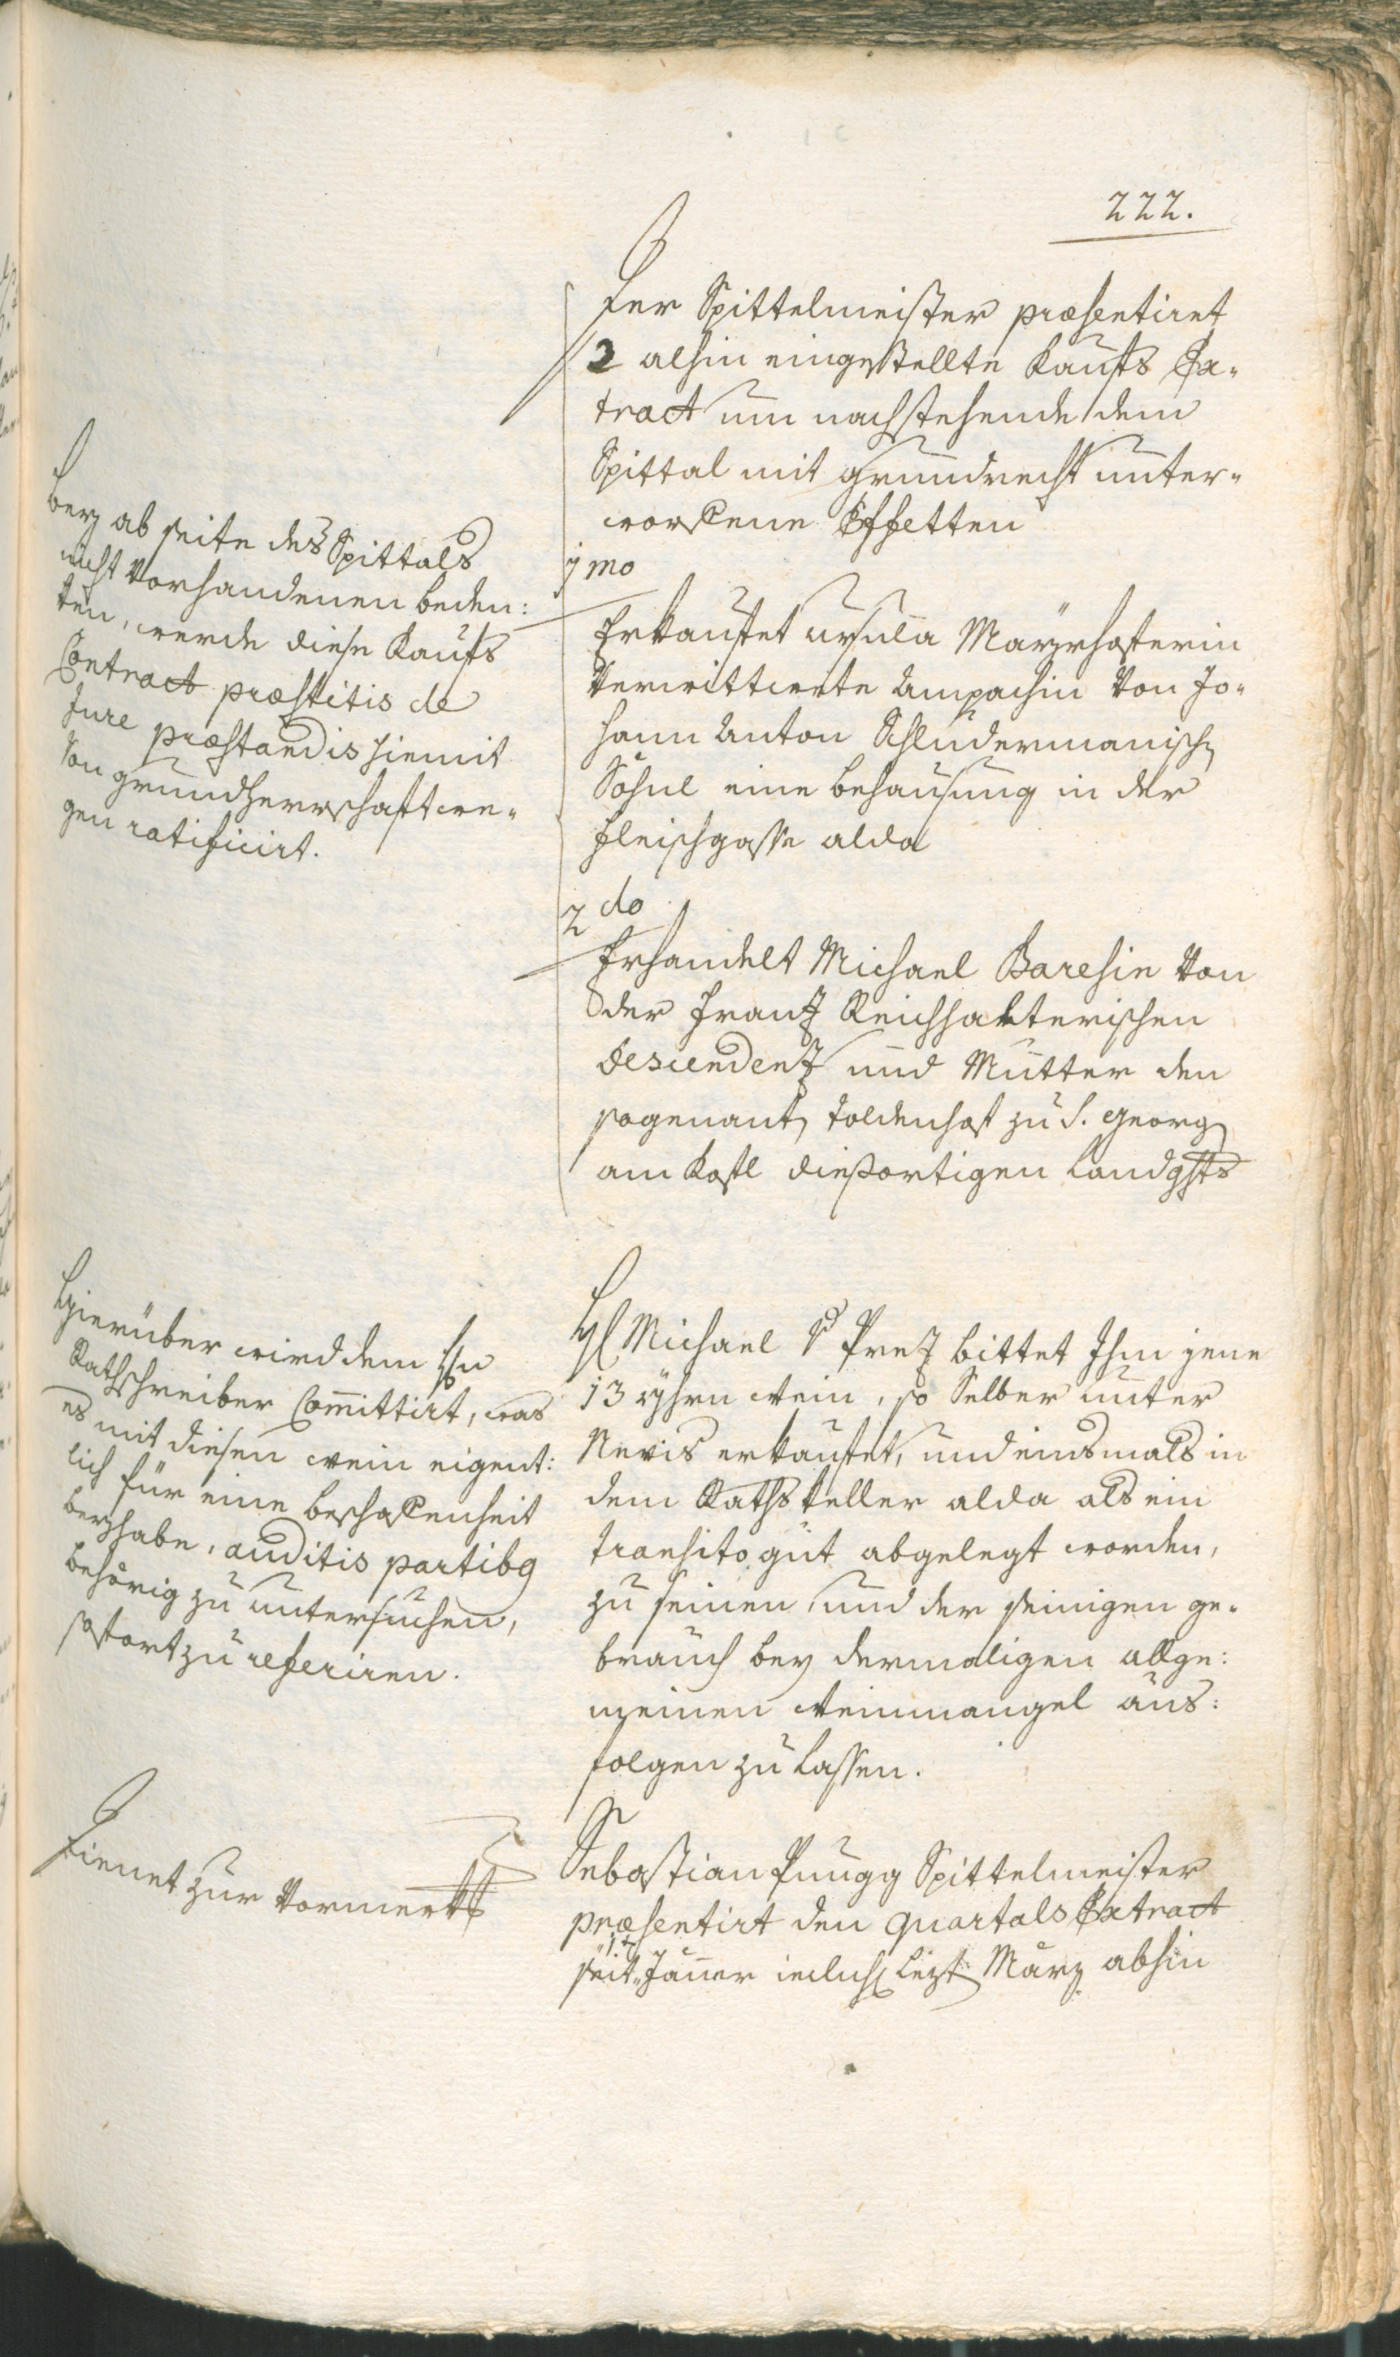 222.
Der Spittelmeister præsentiret
2 alhin eingestellte Kaufs Ex-
tract um nachstehende dem
Spittal mit grundrecht unter-
worfene Effetten
1mo
Erkaufet Ursula Mayrhoferin
verwittwete Ampachin von Jo-
hann Anton Schludermanisch
Söhnl eine behausung in der
Fleischgasse alda
2do
Erhandelt Michael Baresin von
der Franz Reichhalterischen
Descendenz und Mutter den
sogenant Toldenhof zu S. Georg
am Kofl diesortigen Landghts
Bey ab seite des Spittals
nicht vorhandenen beden:
ken, werde diese Kaufs
Contract præstitis de
Jure præstandis hiemit
von grundherrschaft we-
gen ratificirt.
H Michael v Prez bittet Ihm jene
13 yhrn wein, so Selber unter
Nevis erkaufet, und einsmals in
dem Raths keller alda als ein
transito gut abgelegt worden,
zu seinen und der seinigen ge-
brauch bey dermaligen allge:
meinen weinmangel aus:
folgen zu lassen.
Hierüber wird dem Hn
Rathschreiber Committirt, was
es mit diesen wein eigent:
lich für eine beschaffenheit
beyhabe, auditis partibq
behörig zu untersuchen,
sofort zu referiren.
Sebastian Pungg Spittelmeister
præsentirt den quartals Extract
seit 1t Jäner iedlich lezt März abhin
Dienet zur Vormerkg